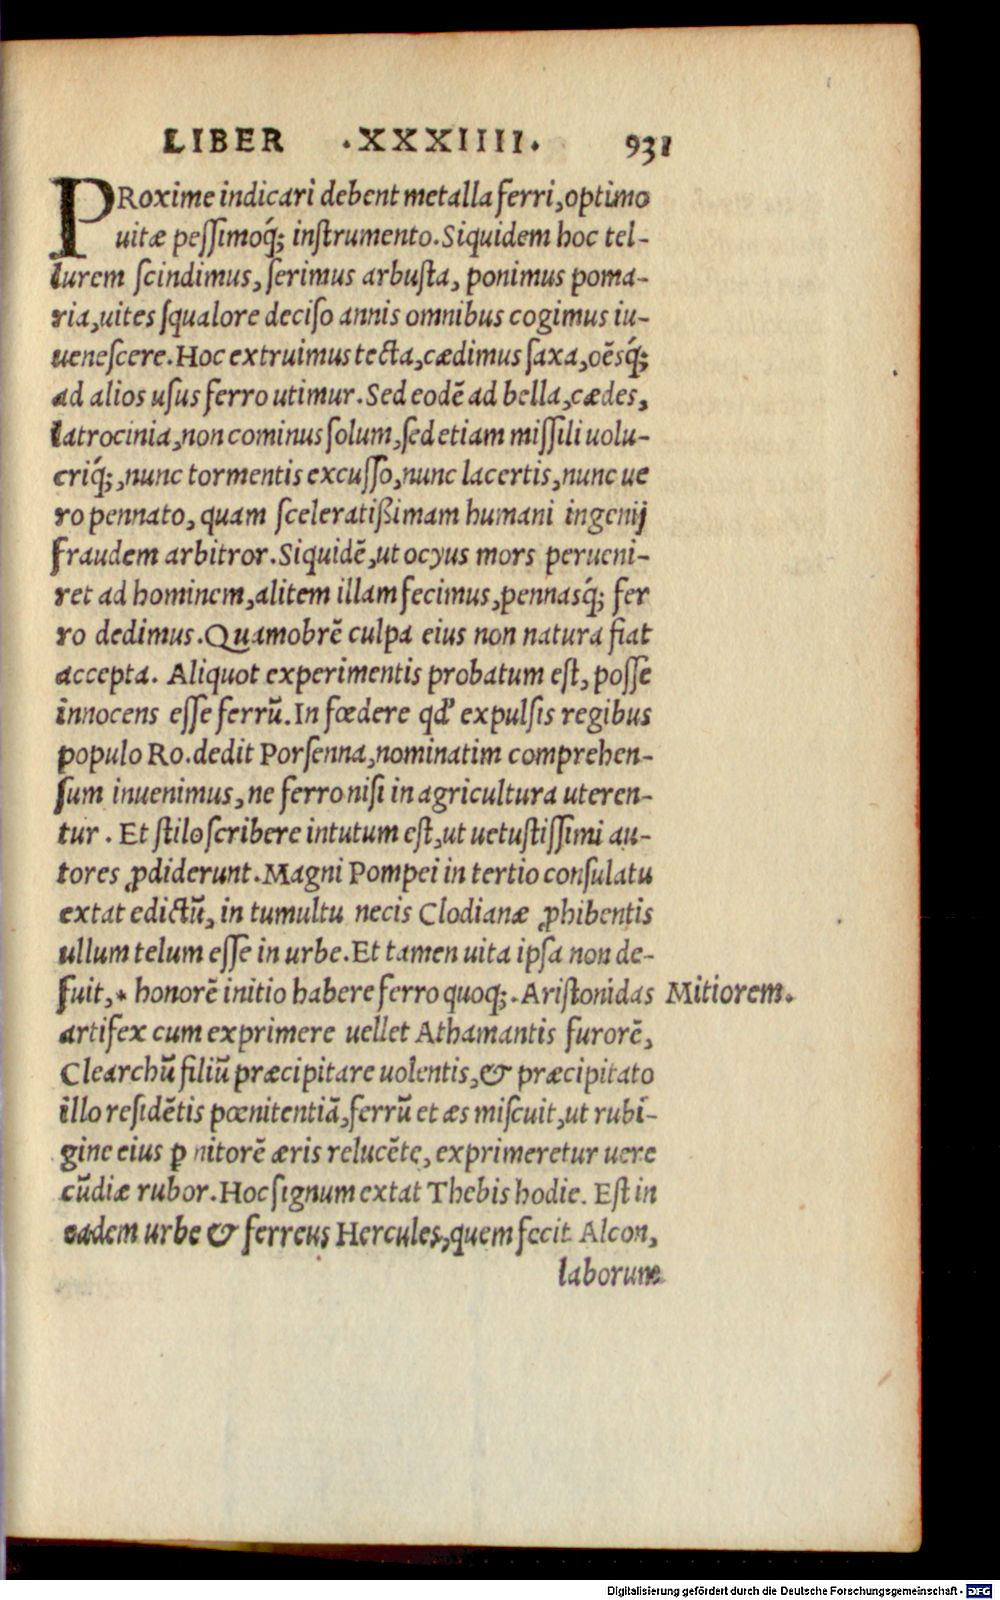 LIBER .XXXIIII. 931
PRoxime indicari debent metalla ferri, optimo
uitæ peſſimoq́; inſtrumento. Siquidem hoc tel-
lurem ſcindimus, ſerimus arbuſta, ponimus poma-
ria, uites ſqualore deciſo annis omnibus cogimus iu-
ueneſcere. Hoc extruimus tecta, cædimus ſaxa, oẽsq́;
ad alios uſus ferro utimur. Sed eodẽ ad bella, cædes,
latrocinia, non cominus ſolum, ſed etiam miſſili uolu-
criq́;, nunc tormentis excuſſo, nunc lacertis, nunc ue
ro pennato, quam ſceleratißimam humani ingenij
fraudem arbitror. Siquidẽ, ut ocyus mors perueni-
ret ad hominem, alitem illam fecimus, pennasq́; fer
ro dedimus. Quamobrẽ culpa eius non natura fiat
accepta. Aliquot experimentis probatum eſt, poſſe
innocens eſſe ferrũ. In fœdere qď expulſis regibus
populo Ro. dedit Porſenna, nominatim comprehen-
ſum inuenimus, ne ferro niſi in agricultura uteren-
tur. Et ſtilo ſcribere intutum eſt, ut uetuſtiſſimi au-
tores ꝓdiderunt. Magni Pompei in tertio conſulatu
extat edictũ, in tumultu necis Clodianæ ꝓhibentis
ullum telum eſſe in urbe. Et tamen uita ipſa non de-
fuit, * honorẽ initio habere ferro quoq;. Ariſtonidas Mitiorem.
artifex cum exprimere uellet Athamantis furorẽ,
Clearchũ filiũ præcipitare uolentis, & præcipitato
illo reſidẽtis pœnitentiã, ferrũ et æs miſcuit, ut rubi-
gine eius ꝑ nitorẽ æris relucẽte, exprimeretur uere
cũdiæ rubor. Hoc ſignum extat Thebis hodie. Eſt in
eadem urbe & ferreus Hercules, quem fecit Alcon,
laborum
Digitalisierung gefördert durch die Deutsche Forschungsgemeinschaft - DFG